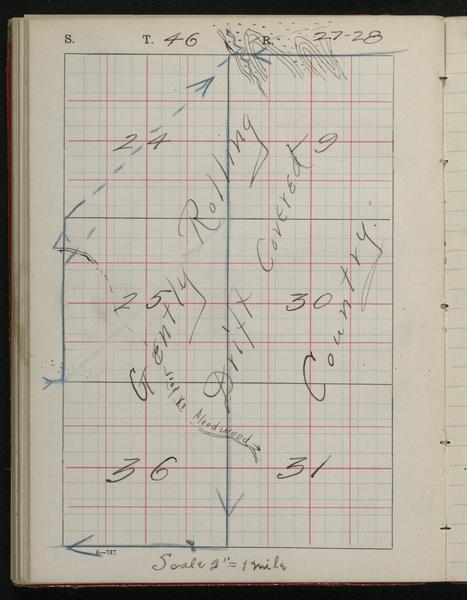 S. T. 46 R. 27-28
24 19
Gently Rolling
Drift Covered
Country.
25 30
Hardwood
36 31
6—747
Scale 2" = 1 mile